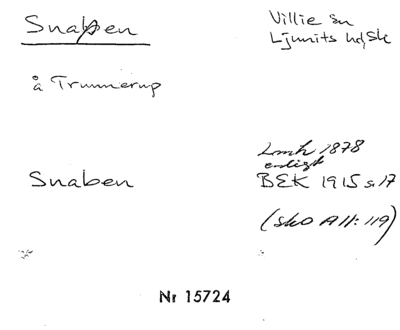 Snappen
Villie sn
Ljunits hd, Sk
å Trunnerup
Lmh 1878
enligt
Snaben
BEK 1915 s. 17
(SkO A11: 119)
Nr 15724